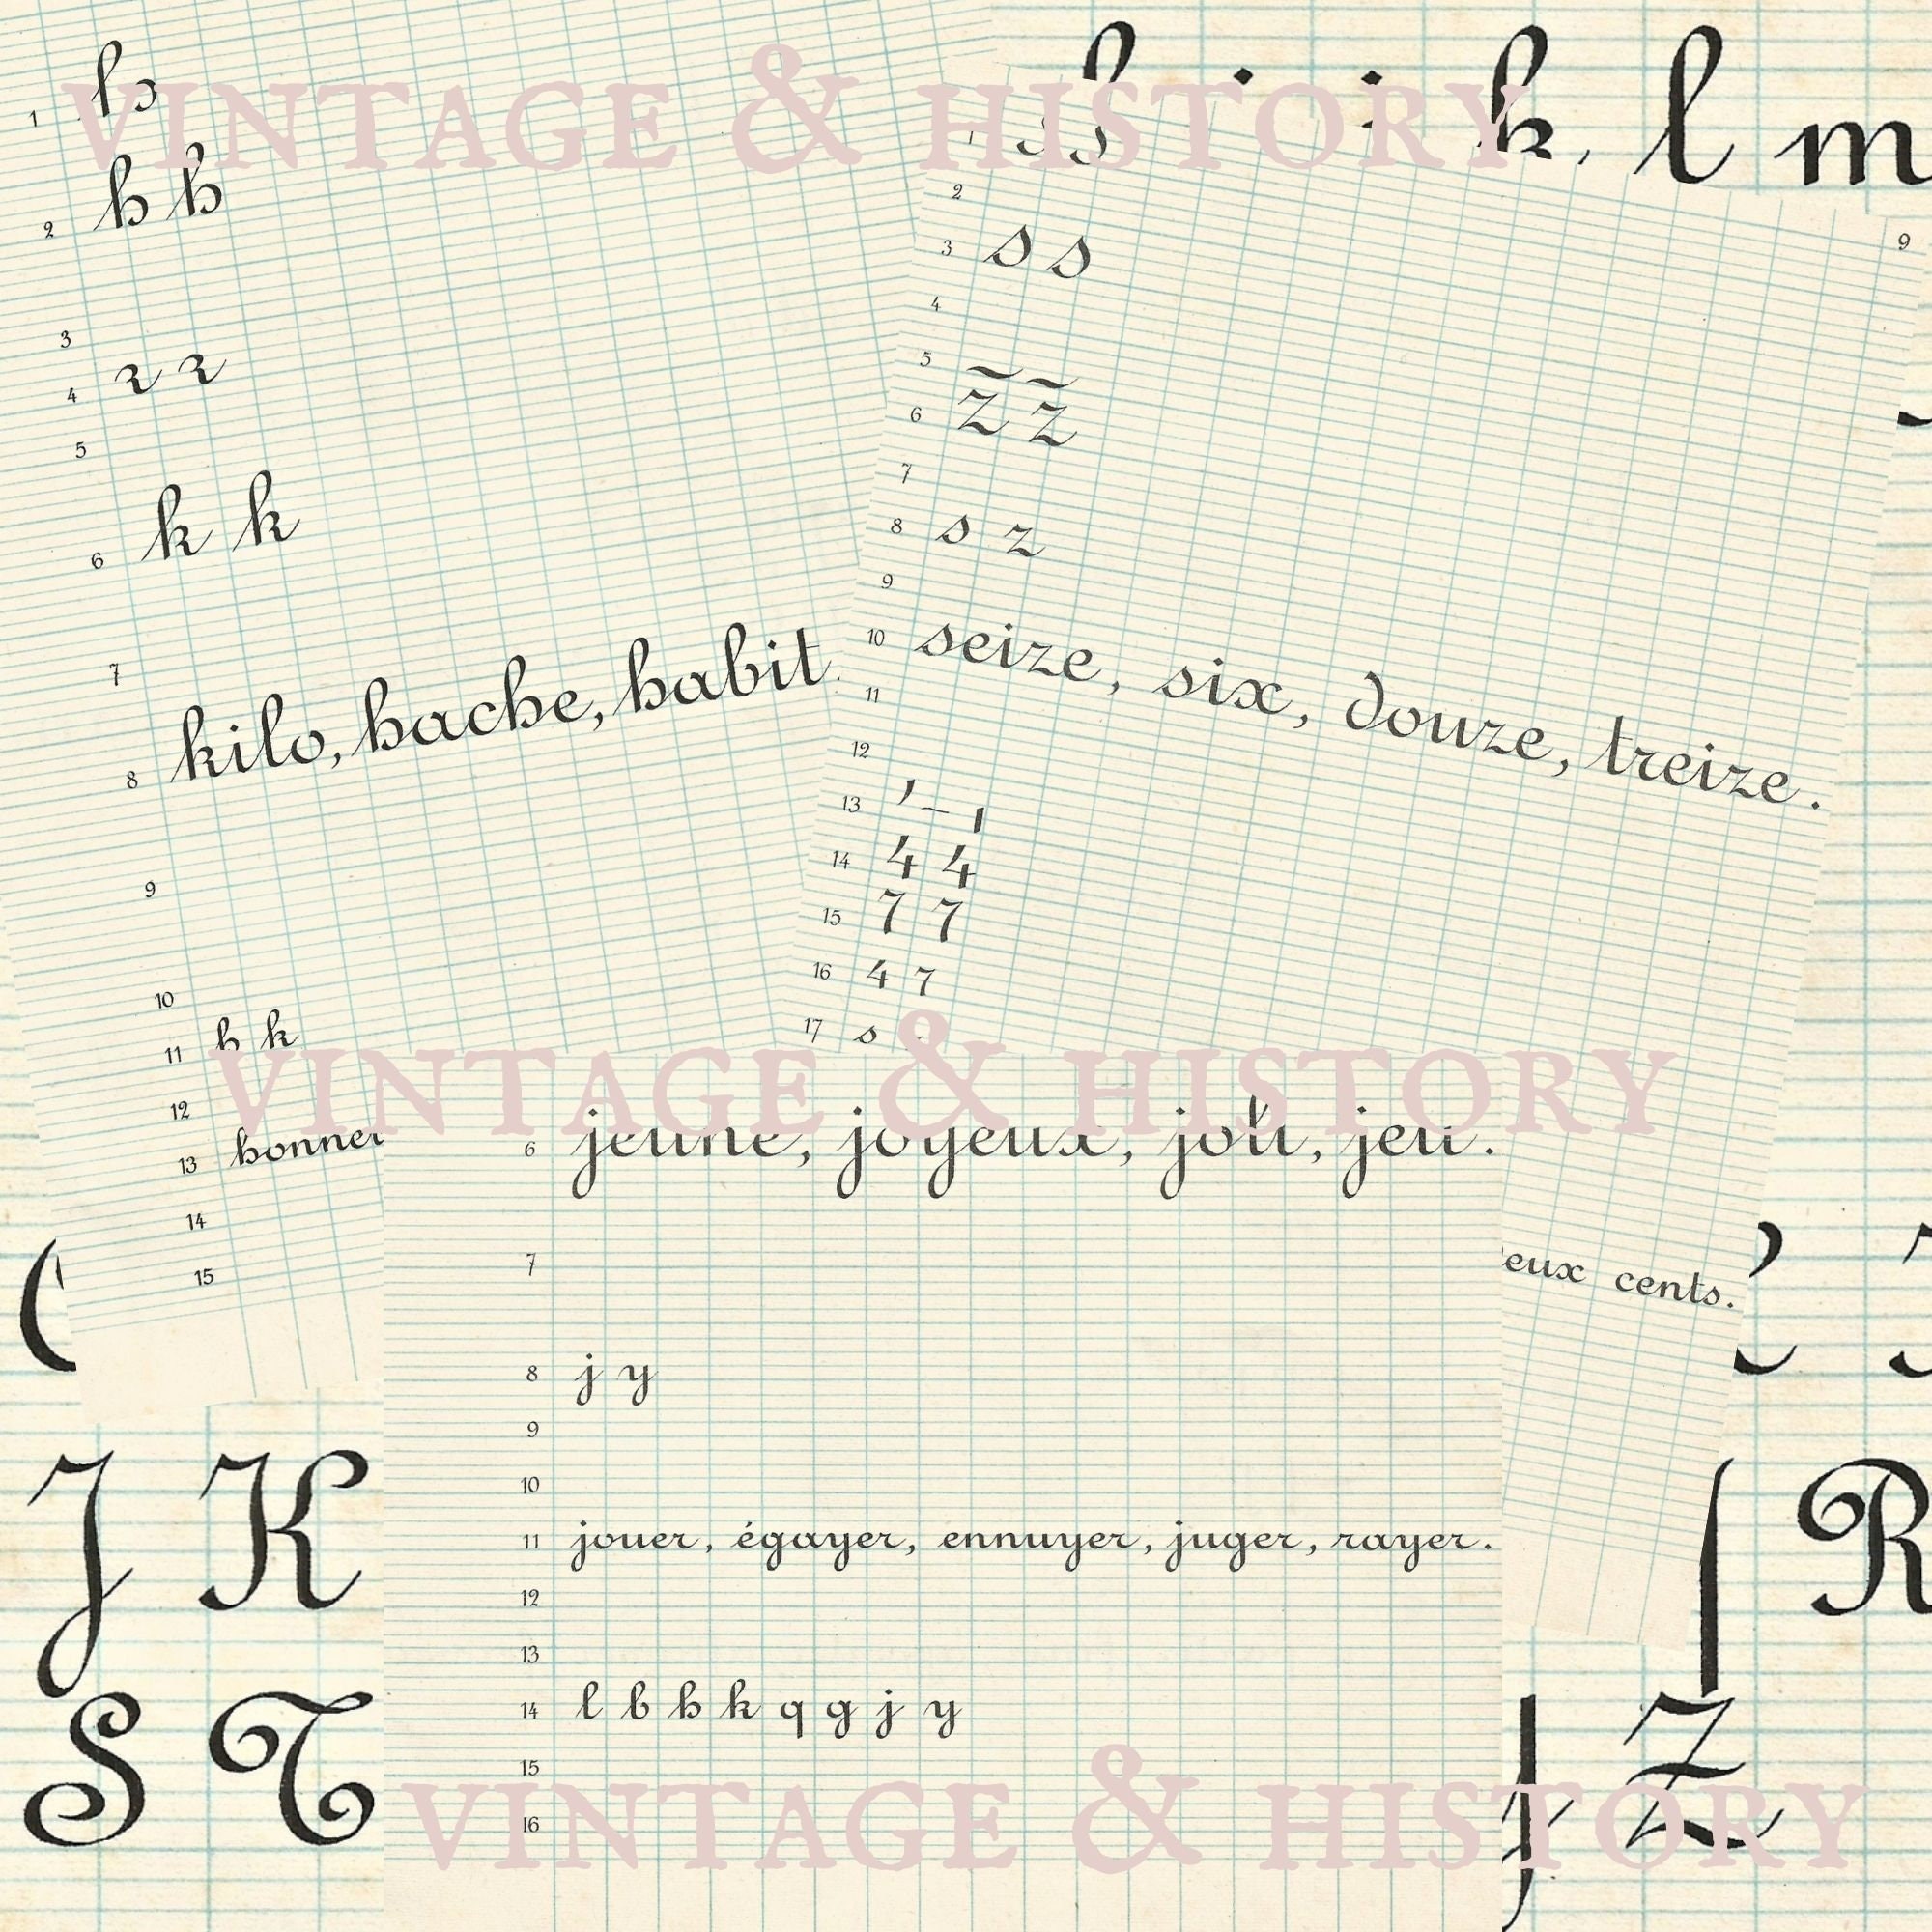 VINTAGE & HISTORY
k l m
1 h
2 h h
3
4 r r
5
6 k k
7
8 kilo, hache, habit
9
10
11 h k
12
13 bonnet
14
15
1
2
3 s s
4
5
6 z z
7
8 s z
9
10 seize, six, douze, treize.
11
12
13
14 4 4
15 7 7
16 4 7
17 s
9
eux cents.
VINTAGE & HISTORY
6 jeune, joyeux, joli, jeu.
7
8 j y
9
10
11 jouer, égayer, ennuyer, juger, rayer.
12
13
14 l b h k q g j y
15
16
J K
R
S T
Z
VINTAGE & HISTORY